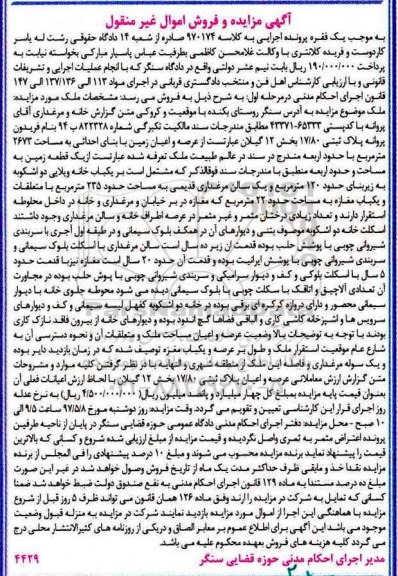 آگهی مزایده و فروش اموال غیر منقول
به موجب یک فقره پرونده اجرایی به کلاسه ۹۷۰۱۷۴ صادره از شعبه ۱۴ دادگاه حقوقی رشت له یاسر
کاردوست و فریده کلانتری با وکالت غلامحسن کاظمی بطرفیت عباس پاسیار مبارکی بخواسته نیابت به
پرداخت ۱۹۰/۰۰۰/۰۰۰ ریال بابت نیم عشر دولتی واقع در دادگاه سنگر که با انجام عملیات اجرایی و تشریفات
قانونی و با ارزیابی کارشناس اهل فن و منتخب دادگستری قربانی در اجرای مواد ۱۱۳ الی ۱۳۷/۱۳۶ الی ۱۴۷
قانون اجرای احکام مدنی درمرحله اول: به شرح ذیل به فروش می رسد: مشخصات ملک مورد مزایده:
ملک موضوع مزایده به آدرس سنگر روستای بکنده با موقعیت و کروکی متن گزارش خانه و مرغداری آقای
پروانه با کدپستی ۶۵۳۳۳-۴۳۳۷۱ مطابق مندرجات سند مالکیت تکبرگی شماره ۸۲۲۳۲۸ ب ۹۴ بنام فریدون
پروانه پلاک ثبتی ۱۷/۸۰ بخش ۱۲ گیلان عبارتست از عرصه و اعیان زمین با بنای احداثی به مساحت ۲۶۷۳
مترمربع با حدود اربعه مندرج در سند در عالم طبیعت ملک تعرفه شده عبارتست ازیک قطعه زمین به
مساحت و حدود اربعه منطبق با مندرجات سند فوق‌الذکر که مشتمل است بر یکباب خانه ویلایی دو اشکوبه
به زیربنای حدود ۱۲۰ مترمربع و یک سالن مرغداری قدیمی به مساحت حدود ۲۳۵ مترمربع با متعلقات
و یکباب مغازه به مساحت حدود ۲۲ مترمربع که مغازه در بر خیابان و مرغداری و خانه در داخل محوطه
استقرار دارند و تعداد زیادی درختان مثمر و غیر مثمر در عرصه اطراف خانه و سالن مرغداری وجود داشتند
اسکلت خانه دو اشکوبه موصوف بتنی و دیوارهای آن در همکف بلوک سیمانی و در طبقه اول آجری با سربندی
شیروانی چوبی با پوشش حلب بوده قدمت آن زیر ده سال است سالن مرغداری با اسکلت بلوک سیمانی و
سربندی شیروانی چوبی با پوشش ایرانیت بوده و قدمت آن حدود ۲۰ سال است مغازه نیزبا قدمت حدود
۵ سال با اسکلت بلوکی و کف و دیوار سرامیکی و سربندی شیروانی چوبی با پوش حلب بوده در مجاورت
آن تعدادی آلاچیق و اتاقک با سکلت چوبی با بلوک سیمانی دیده می شود محوطه جلوی خانه با دیوار
سیمانی محصور و دارای دروازه کرکره ای برقی بوده در خانه دو اشکوبه کفهل لیسه سیمانی و کف و دیوارهای
سرویس ها و اشپزخانه کاشی کاری و الباقی فضاها گچ اندود بوده و دیوارهای خانه از بیرون فاقد نازک کاری
بودند با توجه به توضیحات بالا وضعیت عرصه و اعیان مساحت ملک و متعلقات آن و نحوه دسترسی آن به
شارع عام موقعیت استقرار ملک و طول بر عرصه و یکباب مغازه توصیف شده که در زمان بازدید دایر بوده
و یک سوله مرغداری و فاصله این ملک از منطقه شهری و النهایه با در نظر گرفتن کلیه موارد و مشروحات
متن گزارش ارزش معاملاتی عرصه و اعیان پلاک ثبتی ۱۷/۸۰ بخش ۱۲ گیلان با لحاظ ارزش اعیانات فعلی آن
بعنوان قیمت پایه مزایده بمبلغ کل چهار میلیارد و پانصد میلیون ریال (۴/۵۰۰/۰۰۰/۰۰۰ ریال) به نرخ عدله
روز اجرای قرار این کارشناسی تعیین و تقویم می گردد. وقت مزایده: روز دوشنبه مورخ ۹۷/۵/۸ ساعت ۹/۵ الی
۱۰ صبح - محل مزایده: دفتر اجرای احکام مدنی دادگاه عمومی حوزه قضایی سنگر در پایان از ناحیه طرفین
پرونده اعتراض مثمر به ثمری واصل نگردیده و قیمت مزایده از مبلغ ارزیابی شده شروع و کسانی که بالاترین
قیمت را پیشنهاد نماید برنده مزایده محسوب می شوند و مبلغ ۱۰ درصد پیشنهادی را فی المجلس از برنده
مزایده نقدا خذ و مابقی ظرف حداکثر مدت یک ماه از تاریخ فروش وصول خواهد شد در غیر این صورت
مبلغ ده درصد مستندا به ماده ۱۲۹ قانون اجرای احکام مدنی به نفع صندوق دولت ضبط خواهد شد ضمنا
کسانی که تمایل به شرکت در مزایده را ارند وفق ماده ۱۲۶ همان قانون می تواند ظرف ۵ روز قبل از شروع
مزایده با هماهنگی این اجرا از اموال مورد مزایده بازدید نمایند شرکت در مزایده به منزله قبول وضعیت
موجود می باشد این آگهی برای اطلاع عموم بر معابر الصاق و دریکی از روزنامه های کثیرالانتشار محلی درج
می گردد کلیه هزینه های فروش بعهده محکوم علیه می باشد.
مدیر اجرای احکام مدنی حوزه قضایی سنگر ۴۴۲۹